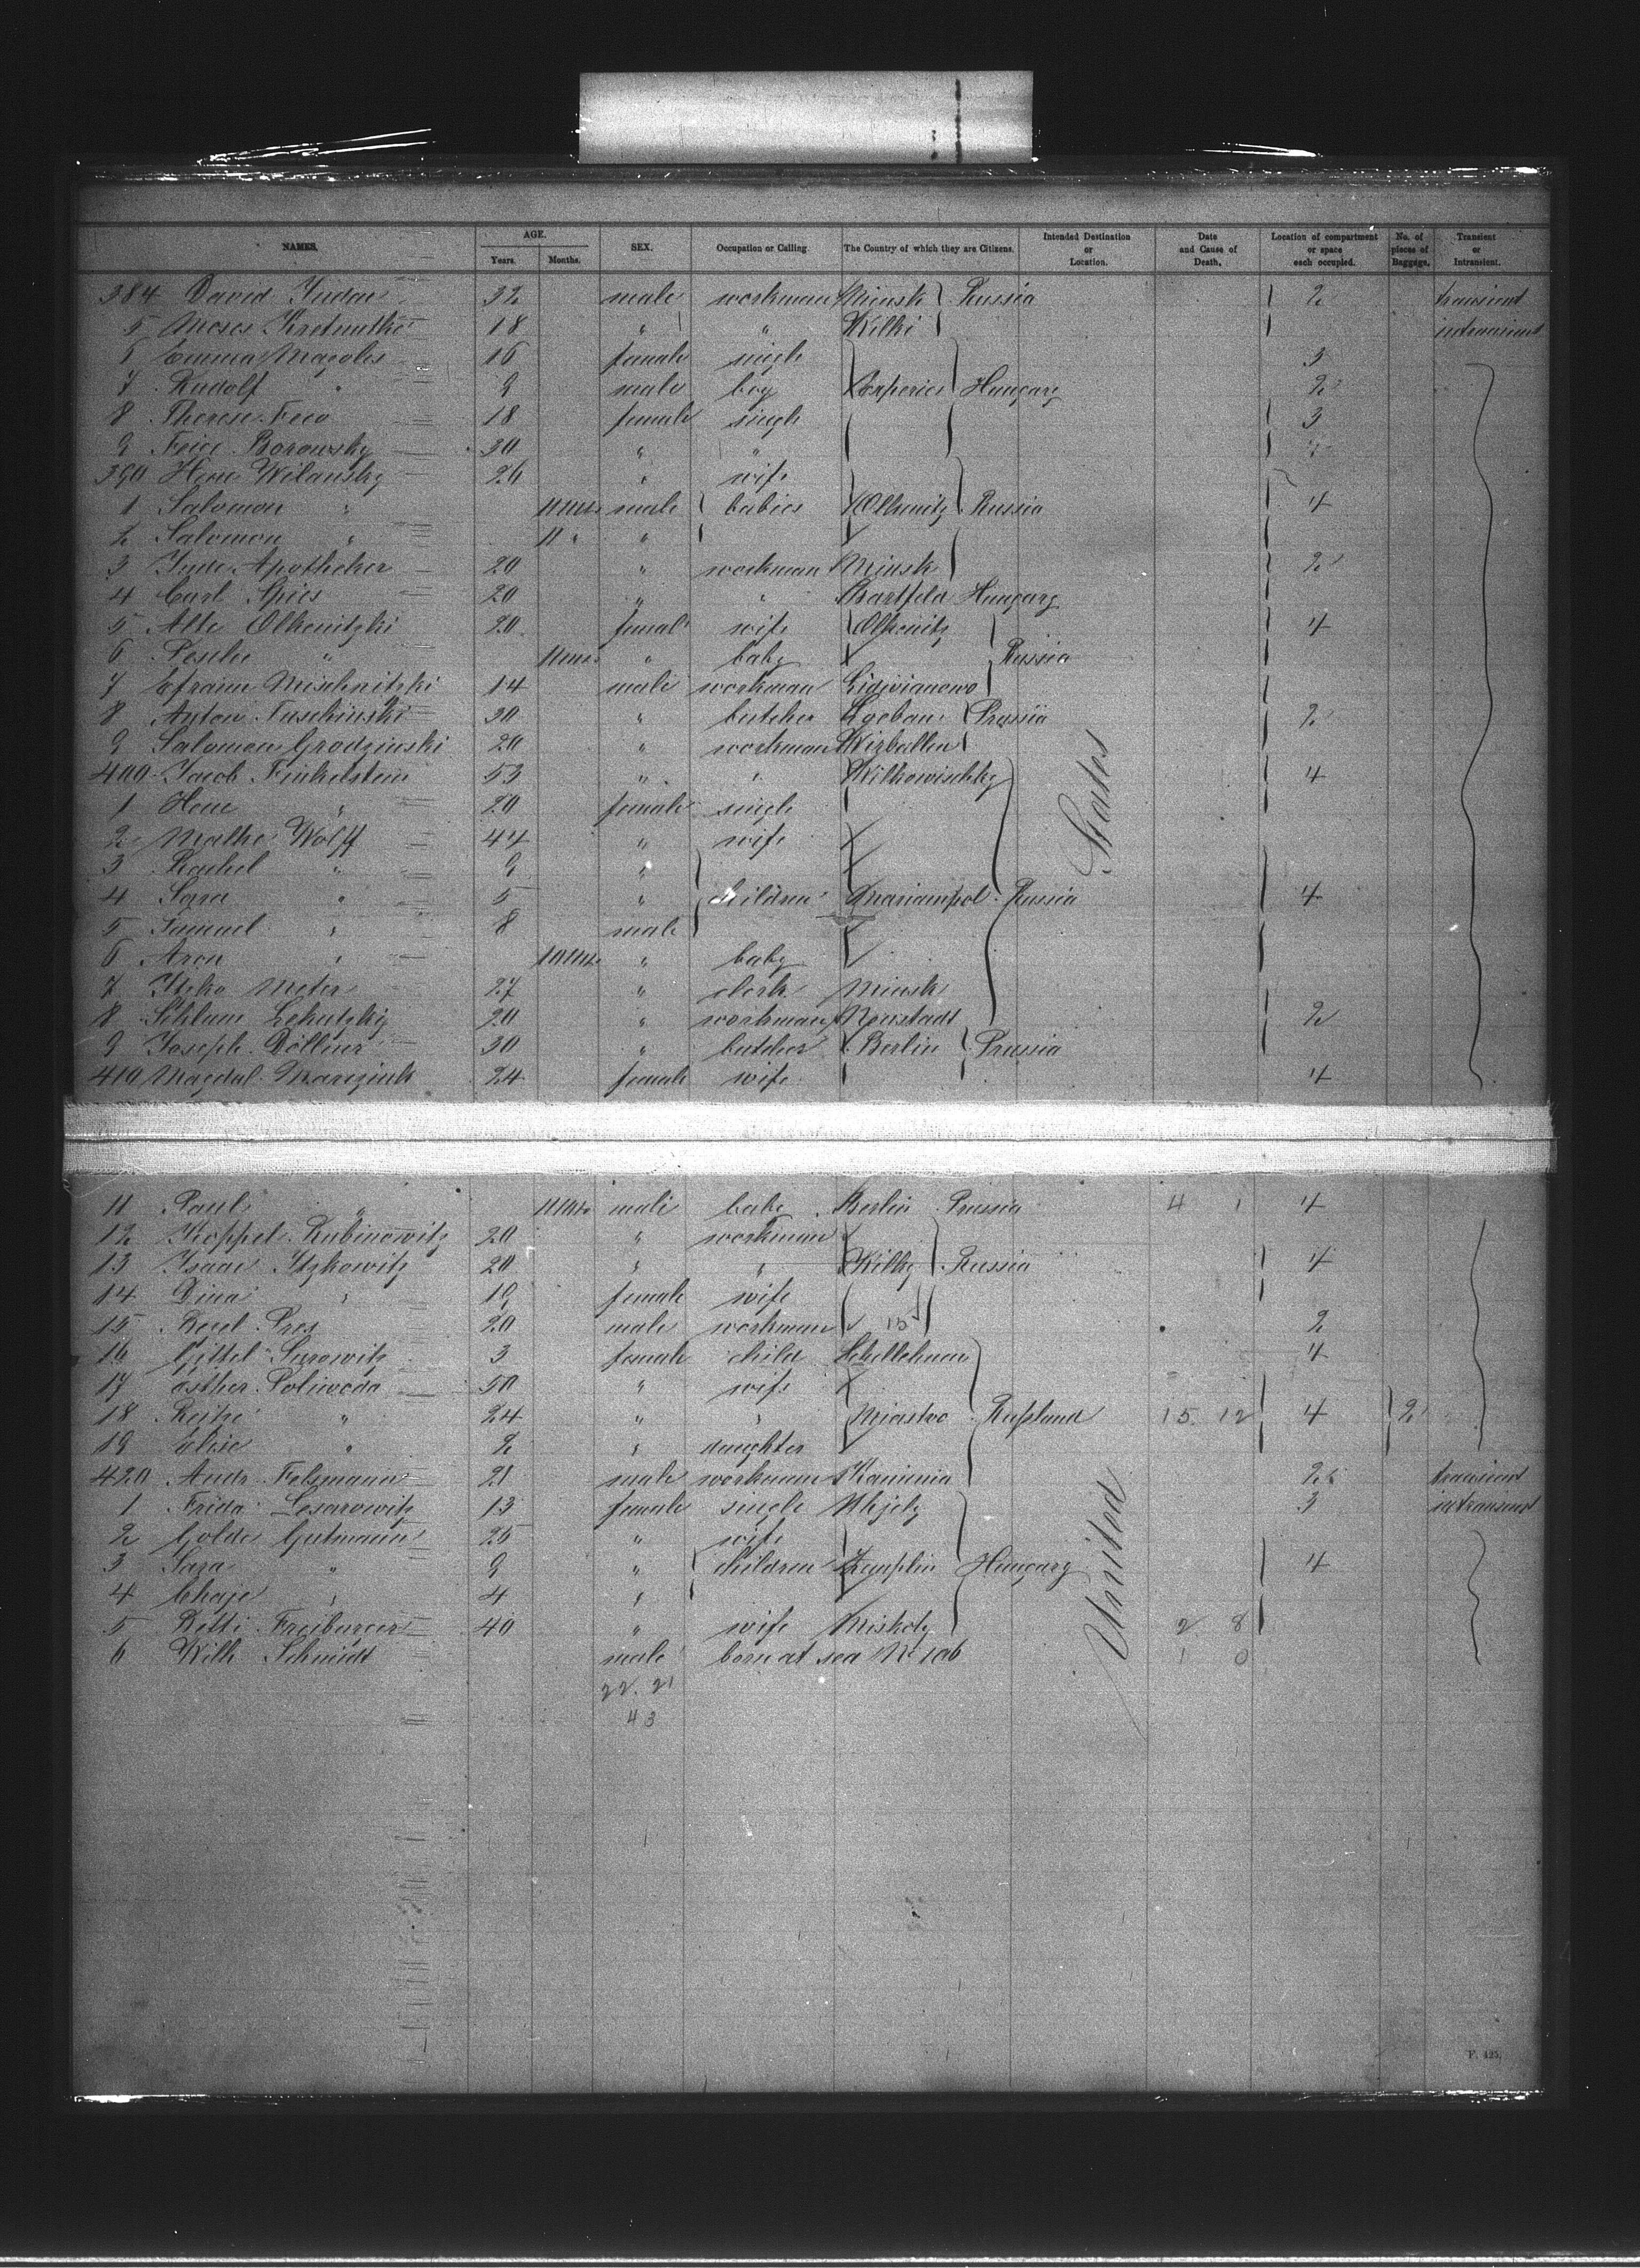 NAMES. AGE. Years. Months. SEX. Occupation or Calling. The Country of which they are Citizens. Intended Destination or Location. Date and Cause of Death. Location of compartment or space each occupied. No. of pieces of Baggage. Transient or Intransient.
384 David Judae 32 male workman Minsk Russia 2 transient
5 Moses 18 " " Wilki intransient
6 Emma Magoles 16 female single 3
7 Rudolf " 9 male boy Hungary 2
8 Therese Feco 18 female single 3
9 Feice Borowsky 30 " "
390 Hene Wilansky 26 " wife
1 Salomon " 11 mts male babies Olkenitz Russia 4
2 Salomon " 11 " "
3 Jude Apotheker 20 " workman Minsk 2
4 Carl Spies 20 " " Bartfeld Hungary
5 Alte Olkenitzki 20 female wife Olkenitz 4
6 Pesche " 11 mts " baby Russia
7 Efraim Mischnitzki 14 male workman
8 Anton Tuschinski 30 " butcher Prussia 2
9 Salomon Grodzinski 20 " workman Wirballen
400 Jacob Finkelstein 53 " " Wilkowischky 4
1 Hene " 20 female single
2 Malke Wolff 44 " wife
3 Rachel " 9 "
4 Sara " 5 " children Mariampol Russia 4
5 Samuel " 8 male
6 Aron " 10 mts " baby
7 Itzko Meter 27 " clerk Minsk
8 Schlum 20 " workman Neustadt 2
9 Joseph Döllner 30 " butcher Berlin Prussia
410 Magdal. 24 female wife 4
States
11 Paul " 11 mts male baby Berlin Prussia 4 1 4
12 Koppel Rubinowitz 20 " workman
13 Isaac Itzkowitz 20 " " Wilky Russia 4
14 Dina " 19 female wife
15 Pres 20 male workman 2
16 Gittel Surowitz 3 female child 4
17 Esther Poliwoda 50 " wife
18 Rejke " 24 " " Rußland 15 12 4 2
19 Elise " 2 " daughter
420 Andr. Felsmann 21 male workman Kaminia 2 transient
1 Frida Lesarowitz 13 female single 3 intransient
2 Golde Gutmann 25 " wife
3 Sara " 9 " children Zemplin Hungary 4
4 Chaje " 4 "
5 Betti Freiburger 40 " wife Miskolz 2 8
6 Wilh. Schmidt male born at sea No 106 1 0
United
22. 21
43
F. 425.